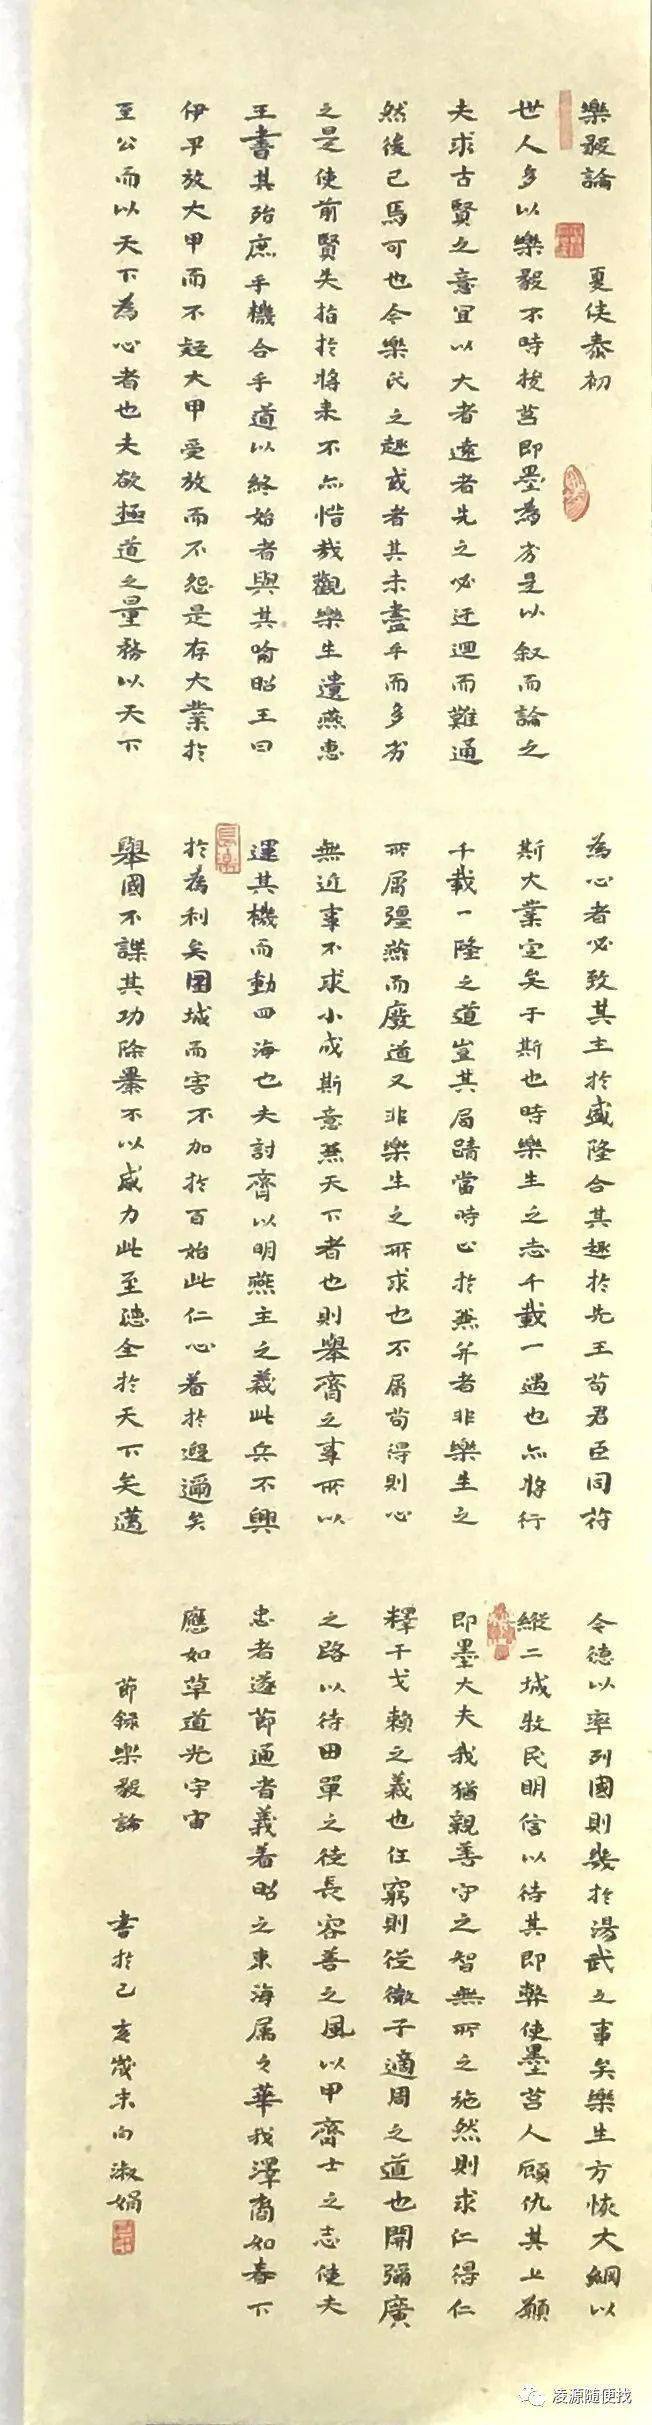 樂毅論 夏侯泰初
世人多以樂毅不時拔莒即墨為劣是以叙而論之
夫求古賢之意宜以大者遠者先之必迂迴而難通
然後已焉可也今樂氏之趣或者其未盡乎而多劣
之是使前賢失指於將来不亦惜哉觀樂生遺燕惠
王書其殆庶乎機合乎道以終始者與其喻昭王曰
伊尹放大甲而不疑大甲受放而不怨是存大業於
至公而以天下為心者也夫欲極道之量務以天下
為心者必致其主於盛隆合其趣於先王苟君臣同符
斯大業定矣于斯也時樂生之志千載一遇也亦將行
千載一隆之道豈其局蹟當時止於兼并者非樂生之
所屑彊燕而廢道又非樂生之所求也不屑苟得則心
無近事不求小成斯意兼天下者也則舉齊之事所以
運其機而動四海也夫討齊以明燕主之義此兵不興
於為利矣圍城而害不加於百姓此仁心着於遐邇矣
舉國不謀其功除暴不以威力此至德全於天下矣邁
令德以率列國則幾於湯武之事矣樂生方恢大綱以
縱二城牧民明信以待其即弊使墨莒人顧仇其上願
即墨大夫我猶親善守之智無所之施然則求仁得仁
釋干戈賴之義也任窮則從微子適周之道也開彌廣
之路以待田單之徒長容善之風以甲齊士之志使夫
忠者遂節通者義着昭之東海属之華我澤裔如春下
應如草道光宇宙
節録樂毅論 書於己亥歲末向淑娟
凌源随便找